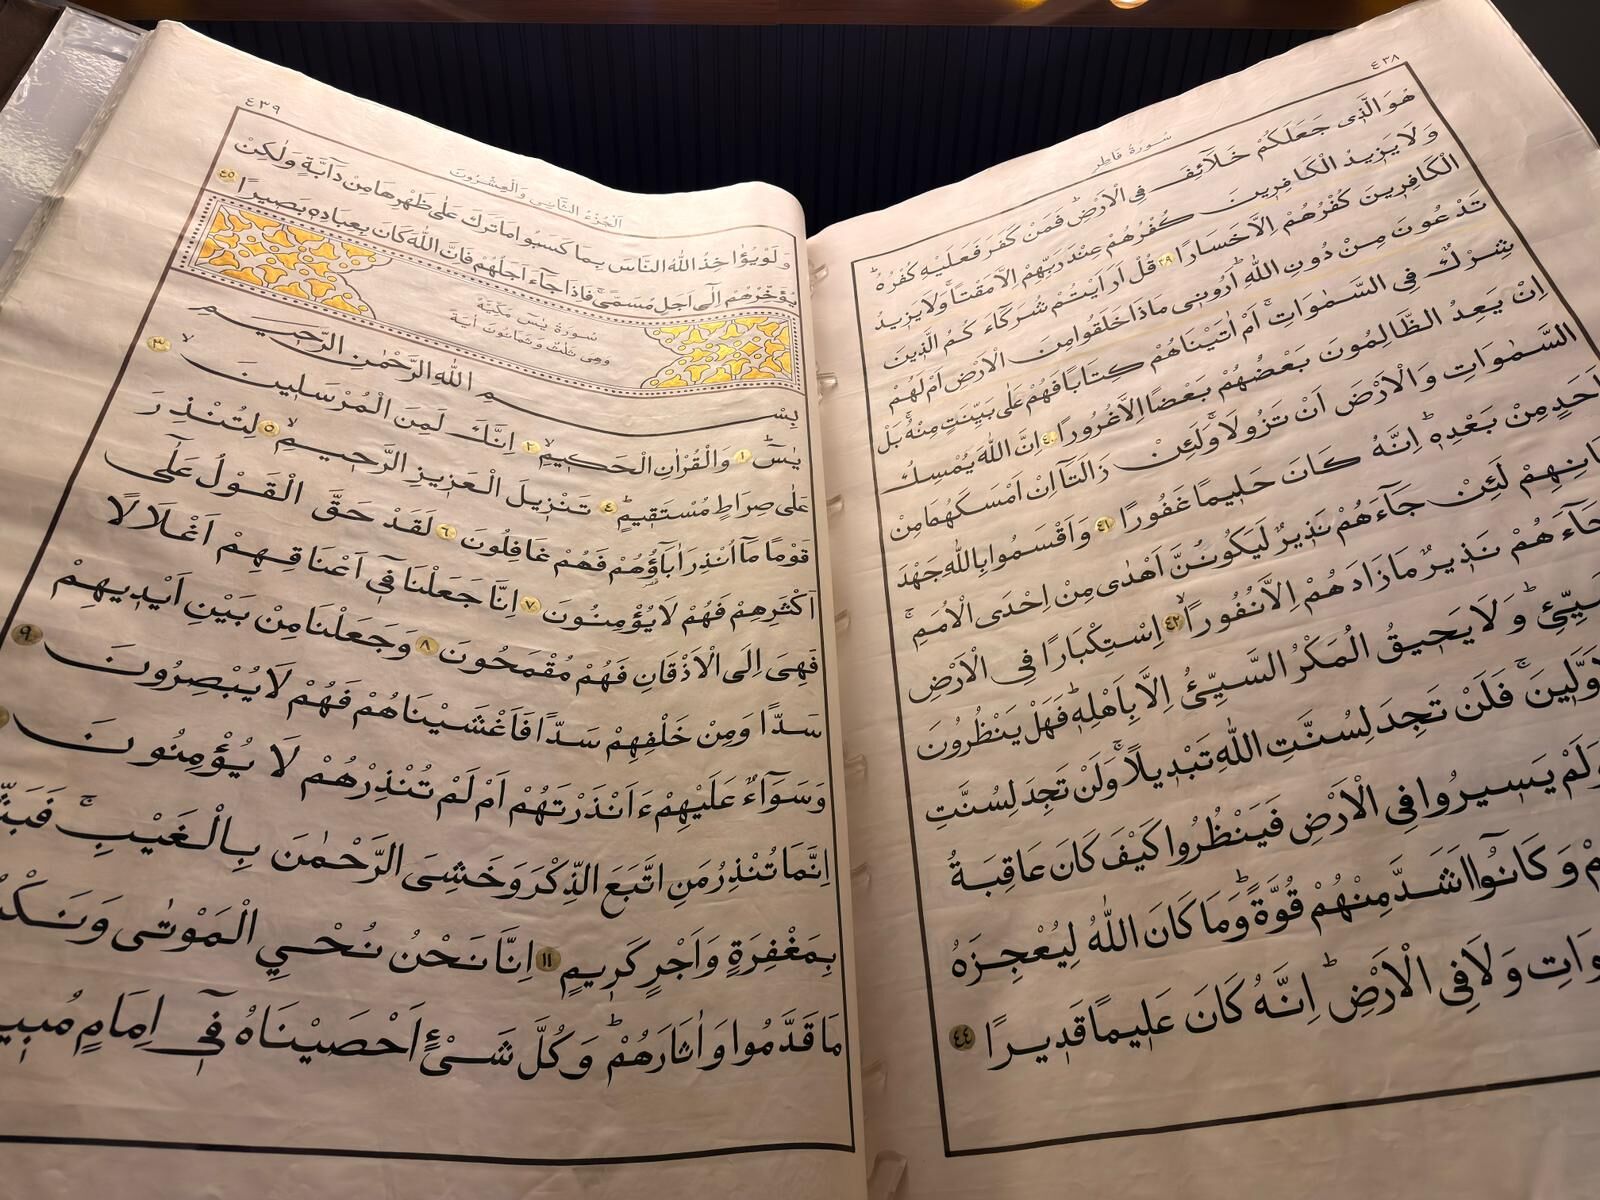 ٤٣٨
سُورَةُ فَاطِرٍ
هُوَ الَّذِى جَعَلَكُمْ خَلَٓائِفَ فِى الْاَرْضِ فَمَنْ كَفَرَ فَعَلَيْهِ كُفْرُهُ
وَلَا يَزِيدُ الْكَافِرِينَ كُفْرُهُمْ عِنْدَ رَبِّهِمْ اِلَّا مَقْتًا وَلَا يَزِيدُ
الْكَافِرِينَ كُفْرُهُمْ اِلَّا خَسَارًا ٣٩ قُلْ اَرَاَيْتُمْ شُرَكَٓاءَ كُمُ الَّذِينَ
تَدْعُونَ مِنْ دُونِ اللّٰهِ اَرُونِى مَاذَا خَلَقُوا مِنَ الْاَرْضِ اَمْ لَهُمْ
شِرْكٌ فِى السَّمٰوَاتِ اَمْ اٰتَيْنَاهُمْ كِتَابًا فَهُمْ عَلٰى بَيِّنَتٍ مِنْهُ بَلْ
اِنْ يَعِدُ الظَّالِمُونَ بَعْضُهُمْ بَعْضًا اِلَّا غُرُورًا ٤٠ اِنَّ اللّٰهَ يُمْسِكُ
السَّمٰوَاتِ وَالْاَرْضَ اَنْ تَزُولَا وَلَئِنْ زَالَتَٓا اِنْ اَمْسَكَهُمَا مِنْ
اَحَدٍ مِنْ بَعْدِهِ اِنَّهُ كَانَ حَلِيمًا غَفُورًا ٤١ وَاَقْسَمُوا بِاللّٰهِ جَهْدَ
لَئِنْ جَٓاءَهُمْ نَذِيرٌ لَيَكُونُنَّ اَهْدٰى مِنْ اِحْدَى الْاُمَمِ
جَٓاءَهُمْ نَذِيرٌ مَا زَادَهُمْ اِلَّا نُفُورًا ٤٢ اِسْتِكْبَارًا فِى الْاَرْضِ
وَلَا يَحِيقُ الْمَكْرُ السَّيِّئُ اِلَّا بِاَهْلِهِ فَهَلْ يَنْظُرُونَ
فَلَنْ تَجِدَ لِسُنَّتِ اللّٰهِ تَبْدِيلًا وَلَنْ تَجِدَ لِسُنَّتِ
وَلَمْ يَسِيرُوا فِى الْاَرْضِ فَيَنْظُرُوا كَيْفَ كَانَ عَاقِبَةُ
وَكَانُٓوا اَشَدَّ مِنْهُمْ قُوَّةً وَمَا كَانَ اللّٰهُ لِيُعْجِزَهُ
وَلَا فِى الْاَرْضِ اِنَّهُ كَانَ عَلِيمًا قَدِيرًا ٤٤
٤٣٩
اَلْجُزْءُ الثَّانِى وَالْعِشْرُونَ
وَلَوْ يُؤَاخِذُ اللّٰهُ النَّاسَ بِمَا كَسَبُوا مَا تَرَكَ عَلٰى ظَهْرِهَا مِنْ دَٓابَّةٍ وَلٰكِنْ
يُؤَخِّرُهُمْ اِلٰٓى اَجَلٍ مُسَمًّى فَاِذَا جَٓاءَ اَجَلُهُمْ فَاِنَّ اللّٰهَ كَانَ بِعِبَادِهِ بَصِيرًا ٤٥
سُورَةُ يٰسٓ مَكِّيَّةٌ
وَهِىَ ثَلٰثٌ وَثَمَانُونَ اٰيَةً
بِسْمِ اللّٰهِ الرَّحْمٰنِ الرَّحِيمِ
يٰسٓ ١ وَالْقُرْاٰنِ الْحَكِيمِ ٢ اِنَّكَ لَمِنَ الْمُرْسَلِينَ ٣
عَلٰى صِرَاطٍ مُسْتَقِيمٍ ٤ تَنْزِيلَ الْعَزِيزِ الرَّحِيمِ ٥ لِتُنْذِرَ
قَوْمًا مَٓا اُنْذِرَ اٰبَٓاؤُهُمْ فَهُمْ غَافِلُونَ ٦ لَقَدْ حَقَّ الْقَوْلُ عَلٰٓى
اَكْثَرِهِمْ فَهُمْ لَا يُؤْمِنُونَ ٧ اِنَّا جَعَلْنَا فِٓى اَعْنَاقِهِمْ اَغْلَالًا
فَهِىَ اِلَى الْاَذْقَانِ فَهُمْ مُقْمَحُونَ ٨ وَجَعَلْنَا مِنْ بَيْنِ اَيْدِيهِمْ
سَدًّا وَمِنْ خَلْفِهِمْ سَدًّا فَاَغْشَيْنَاهُمْ فَهُمْ لَا يُبْصِرُونَ ٩
وَسَوَٓاءٌ عَلَيْهِمْ ءَاَنْذَرْتَهُمْ اَمْ لَمْ تُنْذِرْهُمْ لَا يُؤْمِنُونَ
اِنَّمَا تُنْذِرُ مَنِ اتَّبَعَ الذِّكْرَ وَخَشِىَ الرَّحْمٰنَ بِالْغَيْبِ
بِمَغْفِرَةٍ وَاَجْرٍ كَرِيمٍ ١١ اِنَّا نَحْنُ نُحْىِ الْمَوْتٰى
مَا قَدَّمُوا وَاٰثَارَهُمْ وَكُلَّ شَىْءٍ اَحْصَيْنَاهُ فِٓى اِمَامٍ